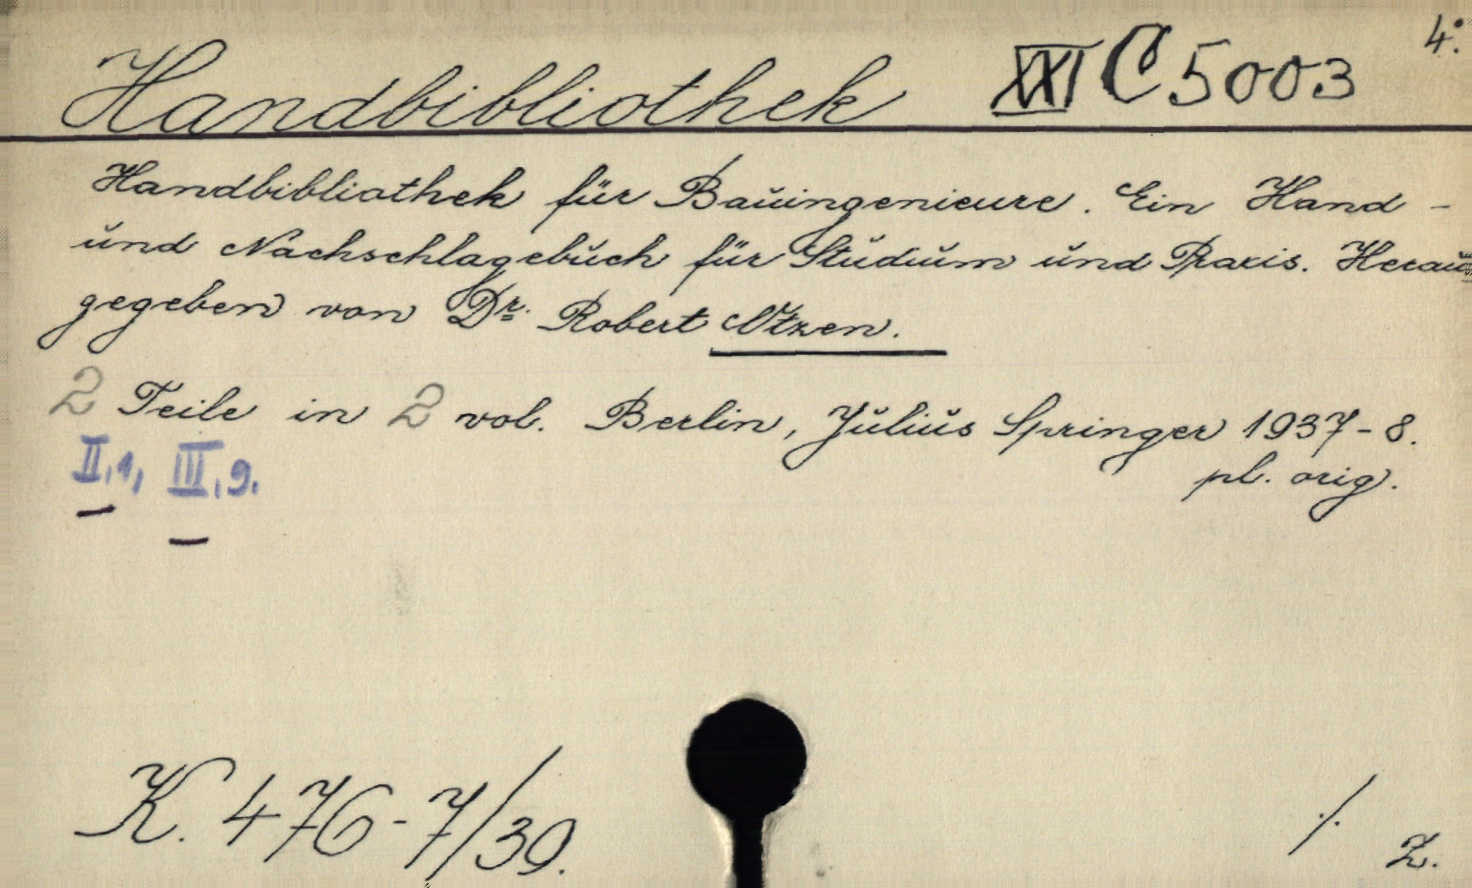 Handbibliothek XXI C 5003 4°.
Handbibliothek für Bauingenieure. Ein Hand-
und Nachschlagebuch für Studium und Praxis. Heraus
gegeben von Dr. Robert Otzen.
2 Teile in 2 vol. Berlin, Julius Springer 1937-8.
II,1, III,9.
pl. orig.
K. 476-7/39.
./.
Z.